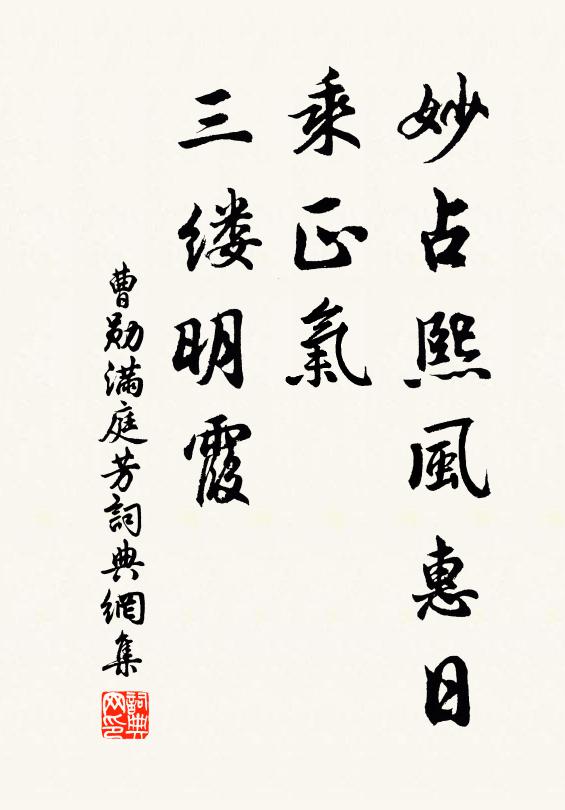 妙占熙風惠日
乘正氣
三缕明霞
曹勛滿庭芳詞典網集
詞典网印